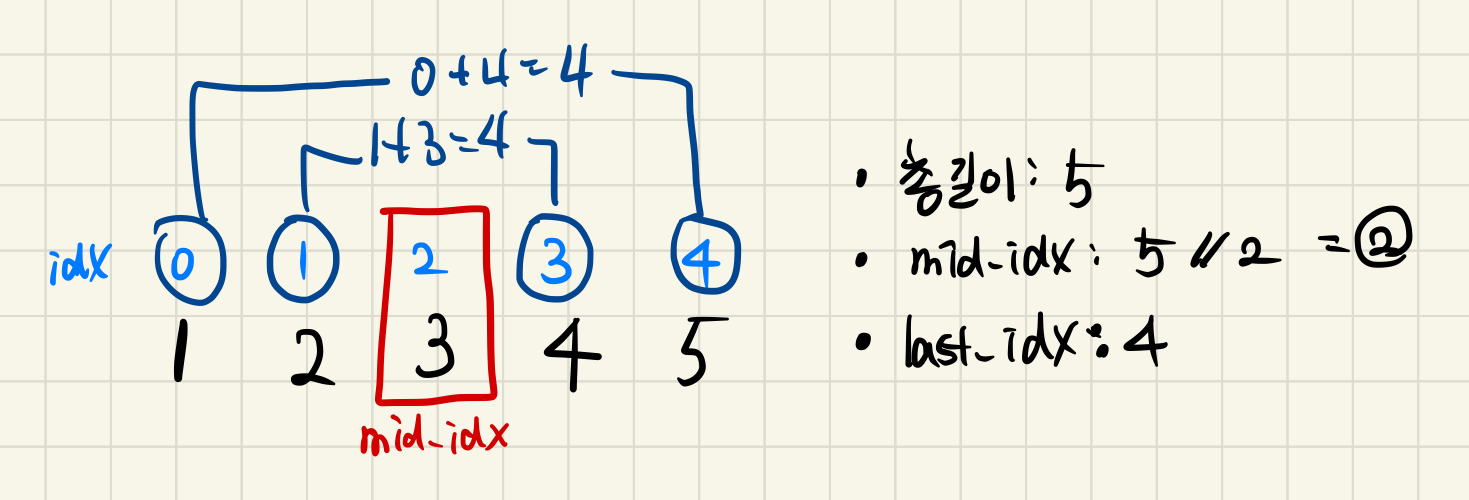 0+4=4
1+3=4
idx 0 1 2 3 4
1 2 3 4 5
mid_idx
• 총길이: 5
• mid_idx: 5 // 2 = ②
• last_idx: 4